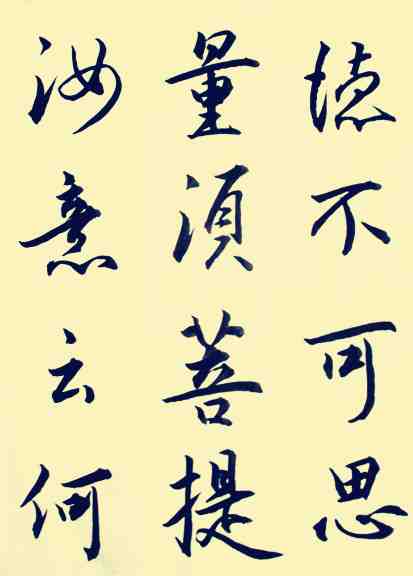 德不可思
量須菩提
汝意云何